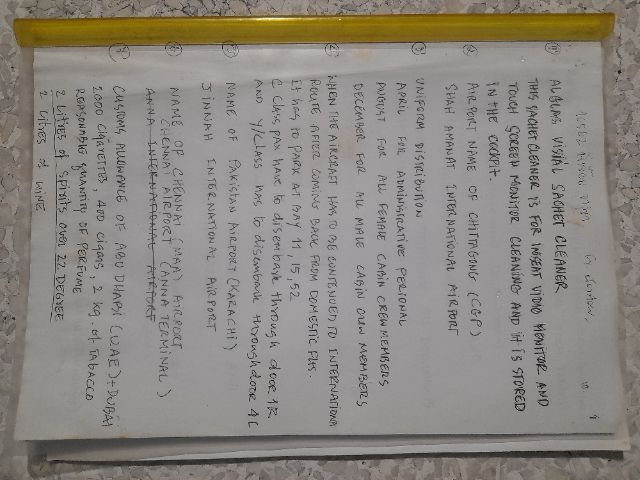 ① ALGLAS VISUAL SACHET CLEANER
THIS SACHET CLEANER IS FOR INSEAT VIDIO MONITOR AND
TOUCH SCREEN MONITOR CLEANING AND IT IS STORED
IN THE COCKPIT
② AIRPORT NAME OF CHITTAGONG (CGP)
SHAH AMANAT INTERNATIONAL AIRPORT
③ UNIFORM DISTRIBUTION
APRIL FOR ADMINISTRATIVE PERIONAL
AUGUST FOR ALL FEMALE CABIN CREWMEMBERS
DECEMBER FOR ALL MALE CABIN CREW MEMBERS
WHEN THE AIRCRAFT HAS TO BE CONTENUED TO INTERNATIONAL
ROUTE AFTER COMING BACK FROM DOMESTIC FLTS.
It has to PARK AT BAY 11, 15, 52
C class pax have to disembark through door 1R
AND Y/class has to disembark through door 4L
⑤ NAME OF PAKISTAN AIRPORT (KARACHI)
JINNAH INTERNATIONAL AIRPORT
⑥ NAME OF CHENNAI (MAA) AIRPORT
CHENNAI AIRPORT (ANNA TERMINAL)
ANNA INTERNATIONAL AIRPORT
⑦ CUSTOMS ALLOWANCE OF ABU DHABI (UAE) + DUBAI
2000 CIGARETTES, 400 cigars, 2 kg. of TABACCO
REASONABLE QUANTITY OF PERFUME
2 LITRES OF SPIRITS OVER 22 DEGREE
2 LITRES OF WINE